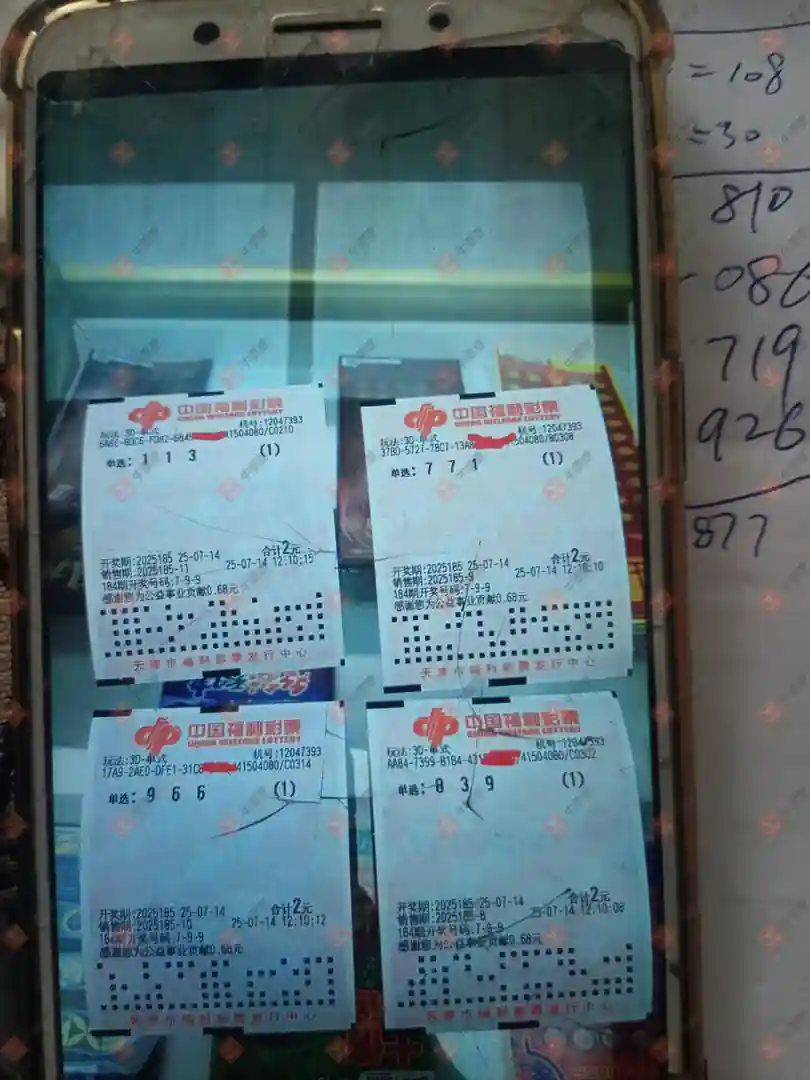 =108
=30
810
086
719
926
877
中国福利彩票
CHINA WELFARE LOTTERY
玩法:3D-单式 机号:12047393
41504080/C0210
单选: 1 1 3 (1)
开奖期:2025185 25-07-14 合计2元
销售期:2025185-11 25-07-14 12:10:15
184期开奖号码:7-9-9
感谢您为公益事业贡献0.68元
天津市福利彩票发行中心
中国福利彩票
CHINA WELFARE LOTTERY
玩法:3D-单式 机号:12047393
单选: 7 7 1 (1)
开奖期:2025185 25-07-14 合计2元
销售期:2025185-9 25-07-14 12:10:10
184期开奖号码:7-9-9
感谢您为公益事业贡献0.68元
天津市福利彩票发行中心
中国福利彩票
CHINA WELFARE LOTTERY
玩法:3D-单式 机号:12047393
41504080/C0314
单选: 9 6 6 (1)
开奖期:2025185 25-07-14 合计2元
销售期:2025185-10 25-07-14 12:10:12
184期开奖号码:7-9-9
感谢您为公益事业贡献0.68元
天津市福利彩票发行中心
中国福利彩票
CHINA WELFARE LOTTERY
玩法:3D-单式 机号:12047393
41504080/C0302
单选: 8 3 9 (1)
开奖期:2025185 25-07-14 合计2元
销售期:2025185-8 25-07-14 12:10:08
184期开奖号码:7-9-9
感谢您为公益事业贡献0.68元
天津市福利彩票发行中心